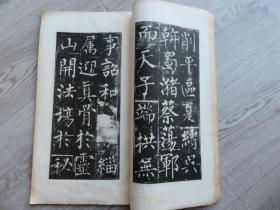 削平區夏縛吳
斡蜀瀦蔡蕩鄆
而天子端拱無
事詔和緇
属迎真骨於靈
山開法場於秘